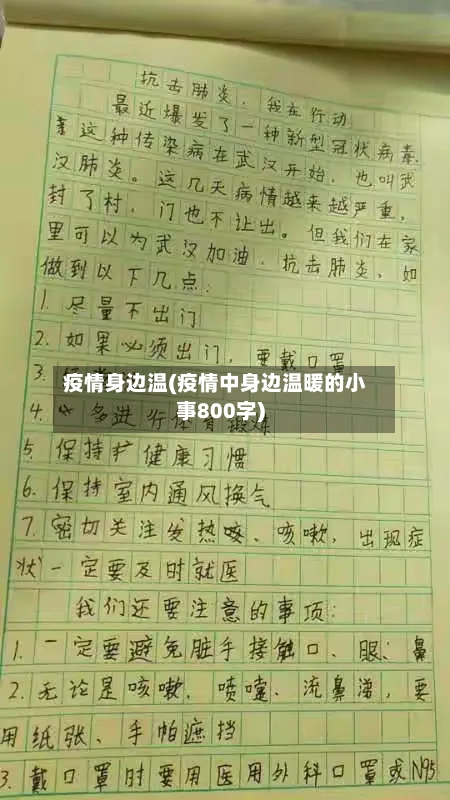 抗击肺炎，我在行动
最近爆发了一种新型冠状病毒，
这种传染病在武汉开始，也叫武
汉肺炎。这几天病情越来越严重，
封了村，门也不让出。但我们在家
里可以为武汉加油，抗击肺炎，如
做到以下几点：
1. 尽量不出门
2. 如果必须出门，要戴口罩
3.
疫情身边温(疫情中身边温暖的小
事800字)
4. 多进行体育锻炼
5. 保持健康习惯
6. 保持室内通风换气
7. 密切关注发热、咳嗽，出现症
状一定要及时就医
我们还要注意的事项：
1. 一定要避免脏手接触口、眼、鼻
2. 无论是咳嗽、喷嚏、流鼻涕，要
用纸张、手帕遮挡
3. 戴口罩时要用医用外科口罩或N95